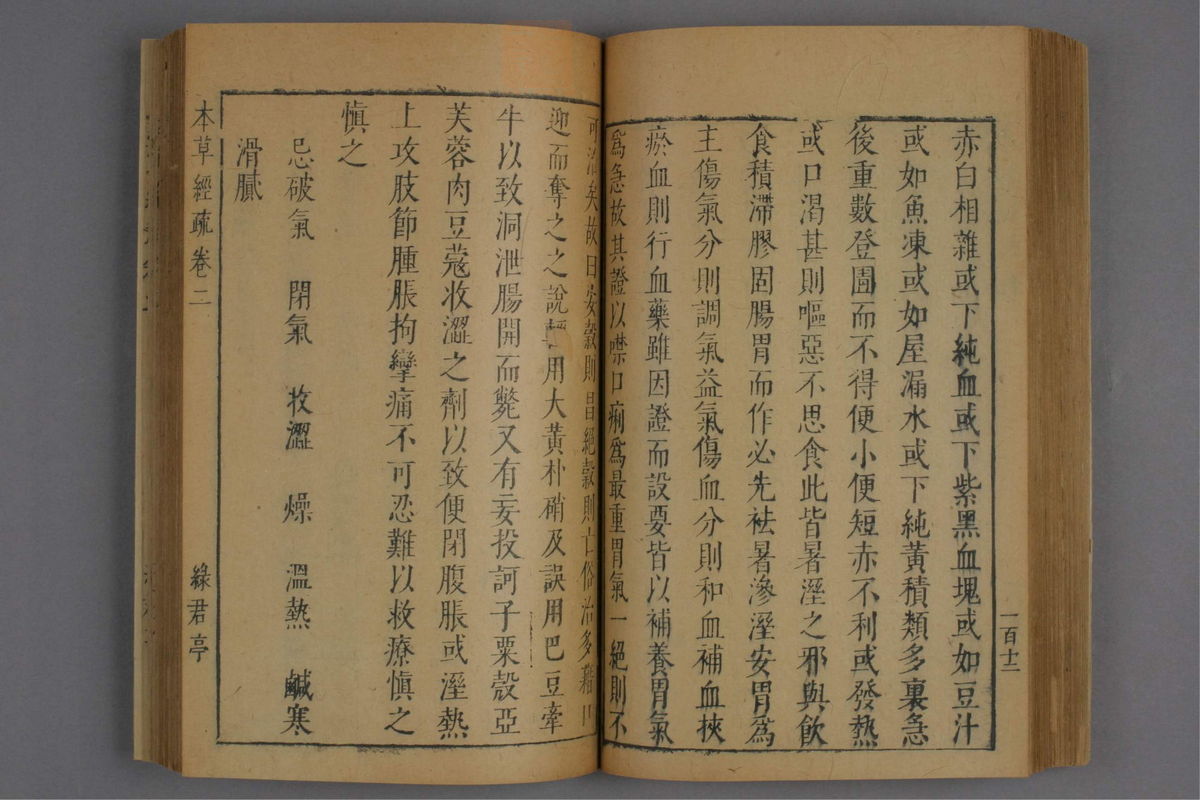 赤白相雜或下純血或下紫黑血塊或如豆汁
或如魚凍或如屋漏水或下純黃積類多裏急
後重數登圊而不得便小便短赤不利或發熱
或口渴甚則嘔惡不思食此皆暑溼之邪與飲
食積滯膠固腸胃而作必先袪暑滲溼安胃爲
主傷氣分則調氣益氣傷血分則和血補血挾
瘀血則行血藥雖因證而設要皆以補養胃氣
爲急故其證以噤口痢爲最重胃氣一絕則不
一百十二
可治矣故曰安穀則昌絕穀則亡俗治多藉口
迎而奪之之說輕用大黃朴硝及誤用巴豆牽
牛以致洞泄腸開而斃又有妄投訶子粟殼亞
芙蓉肉豆蔻收澀之劑以致便閉腹脹或溼熱
上攻肢節腫脹拘攣痛不可忍難以救療慎之
慎之
忌破氣 閉氣 收澀 燥 溫熱 鹹寒
滑膩
本草經疏卷二 綠君亭